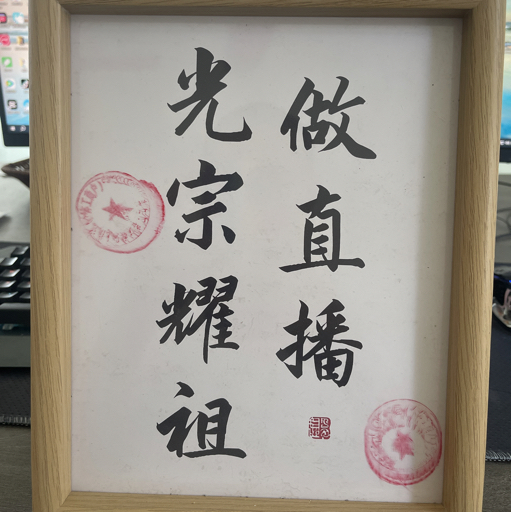 做直播
光宗耀祖